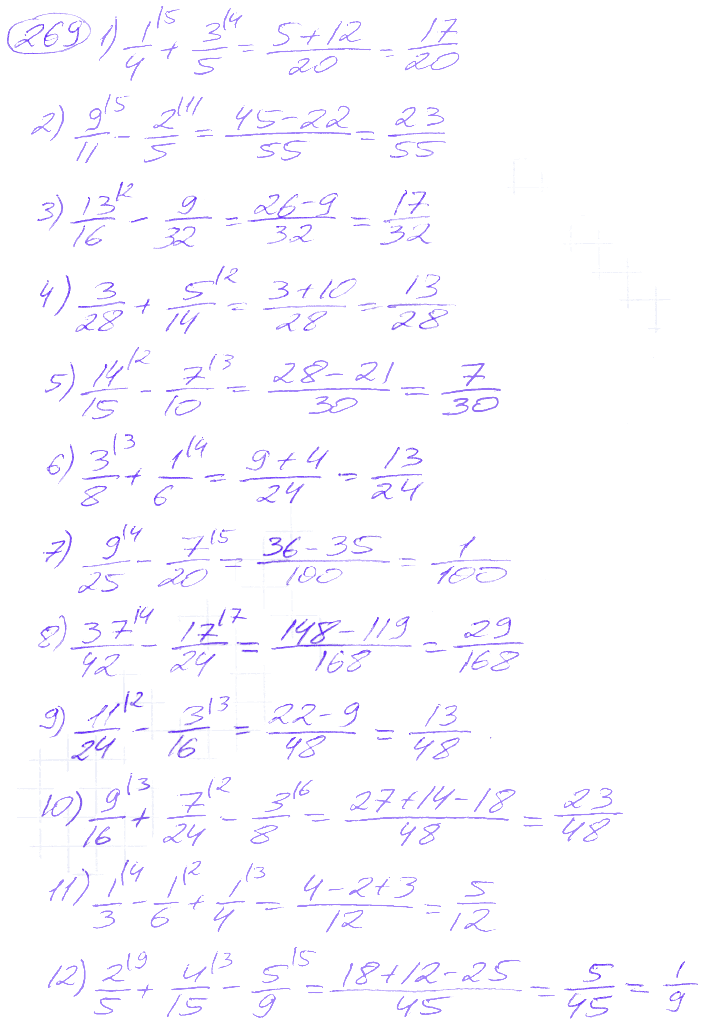 269 1) 1/4 |5 + 3/5 |4 = (5+12)/20 = 17/20
2) 9/11 |5 - 2/5 |11 = (45-22)/55 = 23/55
3) 13/16 |2 - 9/32 = (26-9)/32 = 17/32
4) 3/28 + 5/14 |2 = (3+10)/28 = 13/28
5) 14/15 |2 - 7/10 |3 = (28-21)/30 = 7/30
6) 3/8 |3 + 1/6 |4 = (9+4)/24 = 13/24
7) 9/25 |4 - 7/20 |5 = (36-35)/100 = 1/100
8) 37/42 |4 - 17/24 |7 = (148-119)/168 = 29/168
9) 11/24 |2 - 3/16 |3 = (22-9)/48 = 13/48
10) 9/16 |3 + 7/24 |2 - 3/8 |6 = (27+14-18)/48 = 23/48
11) 1/3 |4 - 1/6 |2 + 1/4 |3 = (4-2+3)/12 = 5/12
12) 2/5 |9 + 4/15 |3 - 5/9 |5 = (18+12-25)/45 = 5/45 = 1/9